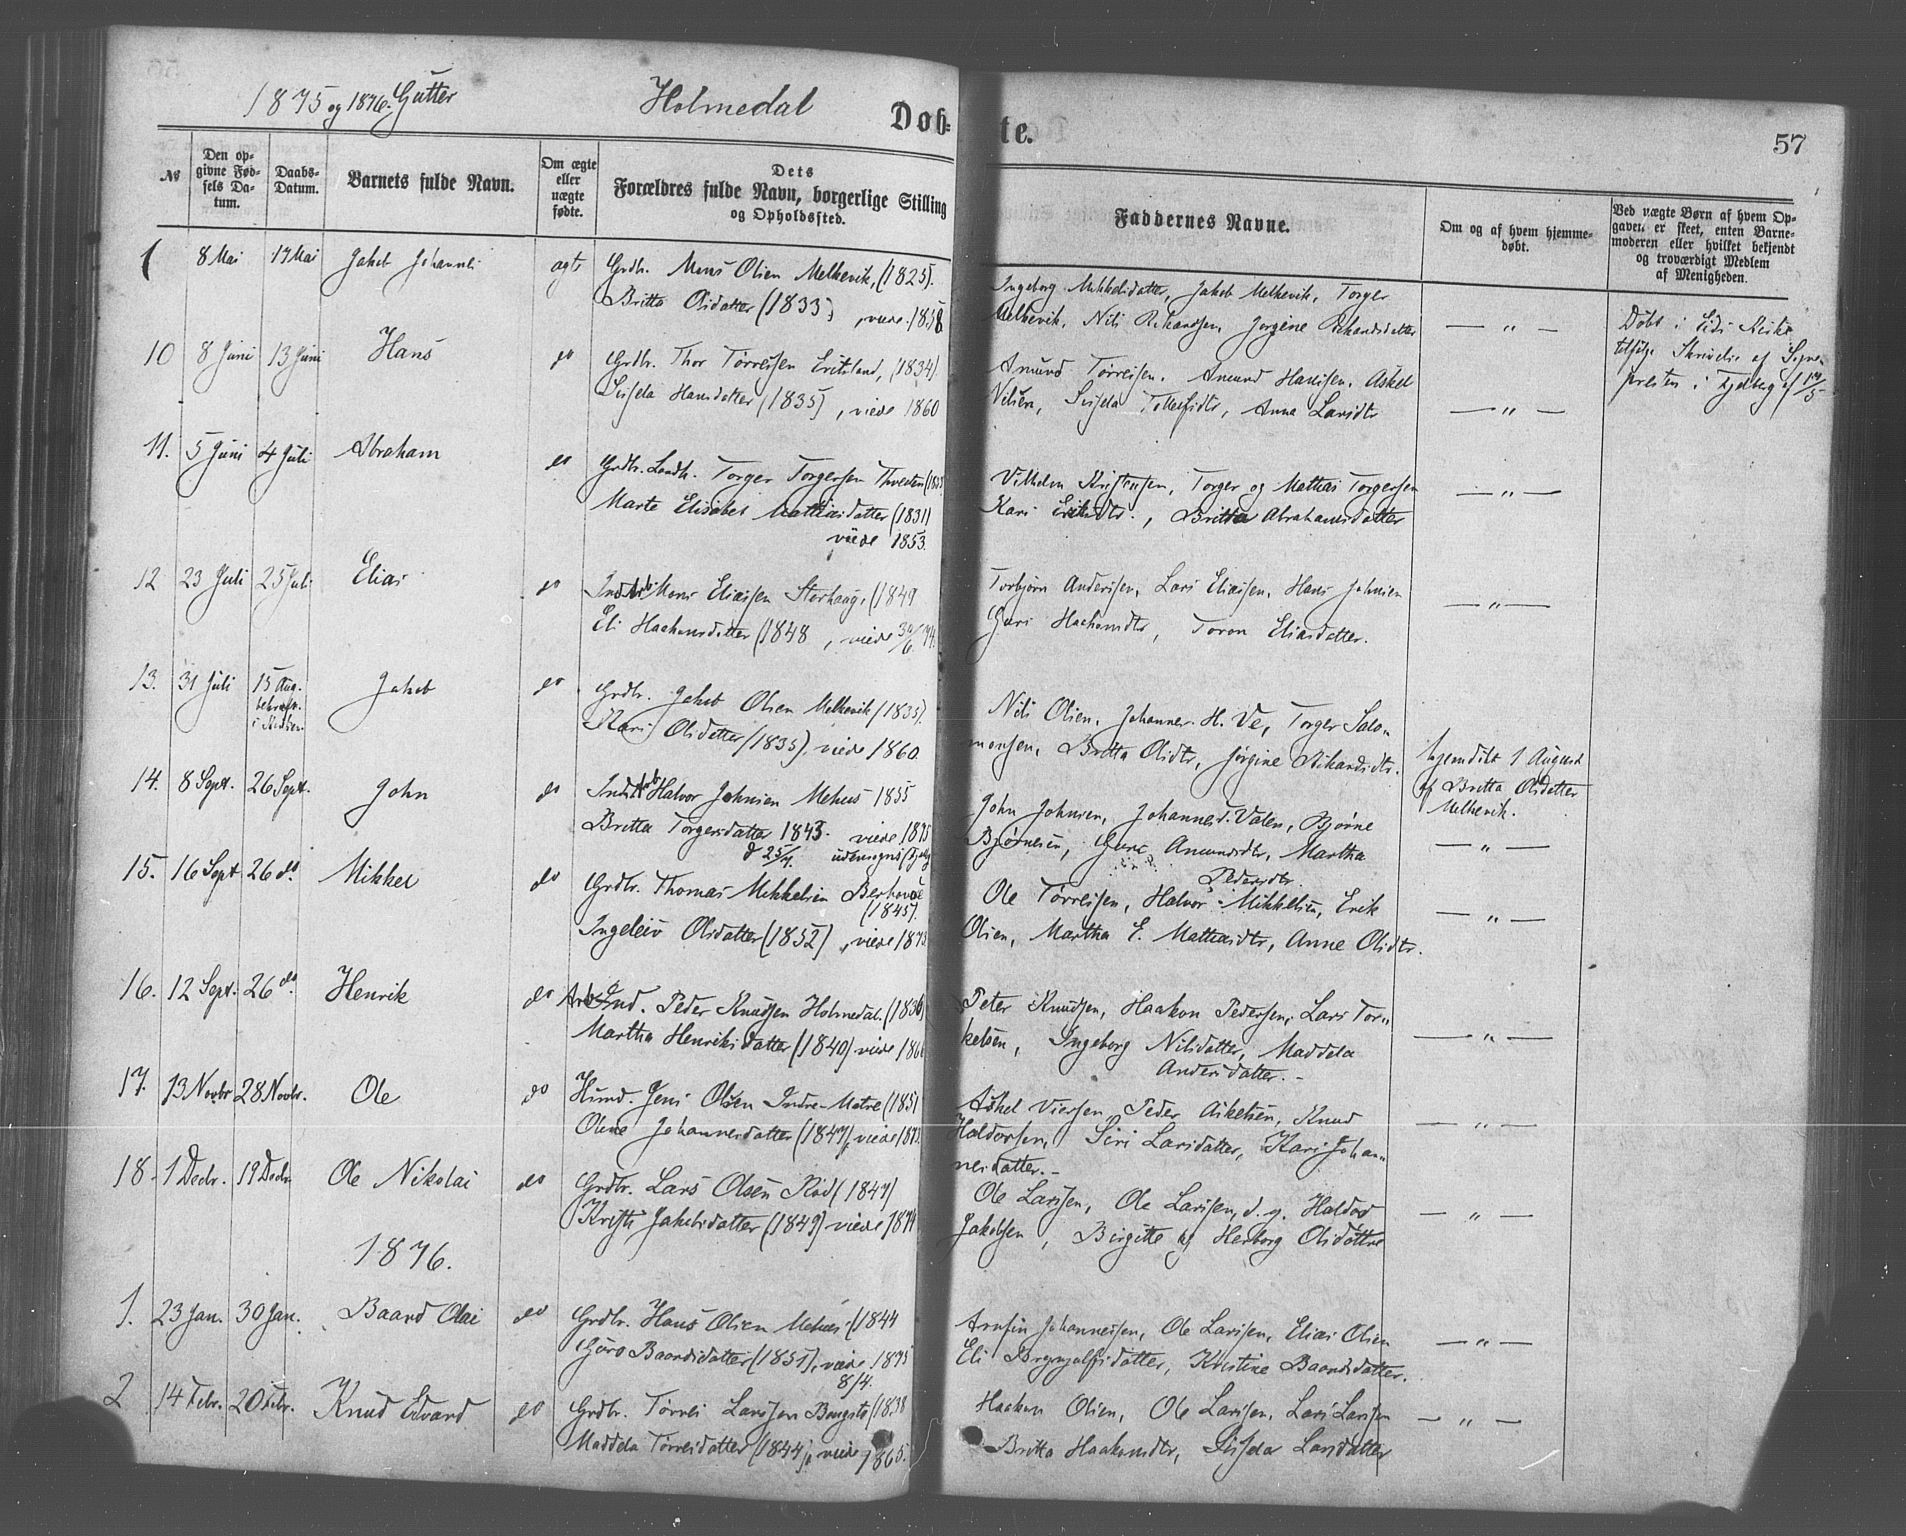 1875 og 1876. Gutter
Holmedal
Døb-
te.
57
№
Den op-
givne Fød-
sels Da-
tum.
Daabs-
Datum.
Barnets fulde Navn.
Om ægte
eller
uægte
fødte.
Dets
Forældres fulde Navn, borgerlige Stilling
og Opholdssted.
Faddernes Navne.
Om og af hvem hjemme-
døbt.
Ved uægte Børn af hvem Op-
gaven er skeet, enten Barne-
moderen eller hvilket bekjendt
og troværdigt Medlem
af Menigheden.
8 Mai 17 Mai Jakob Johannes ægte Grdbr. Mons Olsen Melkevik, (1825).
Britta Olsdatter (1833), viede 1858
Ingeborg Mikkelsdatter, Jakob Melkevik, Torger
Melkevik, Nils Rikardsen, Jørgine Rikardsdatter — „ —
Døbt i Eids Kirke
tilfølge Skrivelse af Sogne-
presten i Fjelberg af
10 8 Juni 13 Juni Hans do Grdbr. Thor Tørresen Eritsland, (1834).
Sissela Hansdatter (1835), viede 1860
Amund Tørresen, Amund Hansen, Askel
Nilsen, Sissela Tollefsdtr, Anna Larsdtr — „ —
11. 5 Juni 4 Juli Abraham do Grdbr. Torger Torgersen Tveiten
Marte Elisabet Mathiasdatter (1831)
viede 1853.
Vilhelm Kristensen, Torger og Mathias Torgersen
Kari Eriksdtr., Britta Abrahamsdatter — „ —
12 23 Juli 25 Juli Elias do Mons Eliassen Storhaug, (1849
Eli Haakonsdatter (1848, viede 30/6 74.
Torbjørn Andersen, Lars Eliassen, Hans Johnsen
Guri Haakonsdtr, Toron Eliasdatter. — „ —
13. 31 Juli 15 Aug. Jakob do Grdbr. Jakob Olsen Melkevik (1835).
bekræft.
i Kirken
Kari Olsdatter (1835), viede 1860.
Nils Olsen, Johannes H. Ve, Torger Salo-
monsen, Britta Olsdtr, Jørgine Rikardsdtr.
hjemdøbt 1 August
af Britta Olsdatter
Melkevik.
14. 8 Sept. 26 Sept. John do Halvor Johnsen Mehus 1855
Britta Torgersdatter 1843. viede 1875
d 25/4. udensogns
John Johnsen, Johannes T. Valen, Bjørne
Bjørnesen, Guri Amundsdtr, Martha
Pedersdtr. — „ —
15. 16 Sept 26 do. Mikkel do Grdbr. Thomas Mikkelsen Berhoven
(1845).
Ingeleiv Olsdatter (1852), viede 1873
Ole Tørresen, Halvor Mikkelsen, Erik
Olsen, Martha E. Mathiasdtr, Anne Olsdtr. — „ —
16. 12 Sept. 26 do. Henrik do Arb. Ind. Peder Knudsen Holmedal. (1836)
Martha Henriksdatter (1840) viede
Peter Knudsen, Haakon Pedersen, Lars Tor-
kelsen, Ingeborg Nilsdatter, Maddela
Andersdatter. — „ —
17. 13 Novbr 28 Novbr. Ole do Husmd. Jens Olsen Indre-Matre (1851
Olene Johannesdatter (1847), viede 1873.
Askel Viersen, Peder Askelsen, Knud
Haldorsen, Siri Larsdatter, Kari Johan-
nesdatter. — „ —
18. 1 Decbr. 19 Decbr. Ole Nikolai do Grdbr. Lars Olsen Rød (1847)
Kristi Jakobsdatter (1849) viede 1874
Ole Larsen, Ole Larsen, d. y. Haldor
Jakobsen, Birgitte og Herborg Olsdøttre — „ —
1876.
1. 23 Jan. 30 Jan. Baard Olai do Grdbr. Hans Olsen Mehus (1844
Guro Baardsdatter (1851), viede 1875
8/4.
Arnfin Johannessen, Ole Larsen, Elias Olsen
Eli Brynjulfsdatter, Kristine Baardsdatter. — „ —
2 14 Febr. 20 Febr. Knud Edvard do Grdbr. Tørres Larsen Baugstø (1838
Maddela Tørresdatter (1844), viede 1865.
Haakon Olsen, Ole Larsen, Lars Larsen
Britta Haakonsdtr, Sissela Larsdatter — „ —